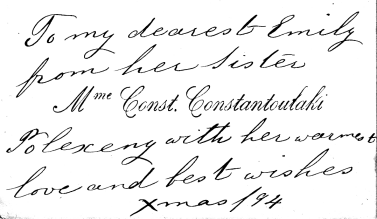 To my dearest Emily
from her sister
Mme Const. Constantoulaki
Polexeny with her warmest
love and best wishes
Xmas /94